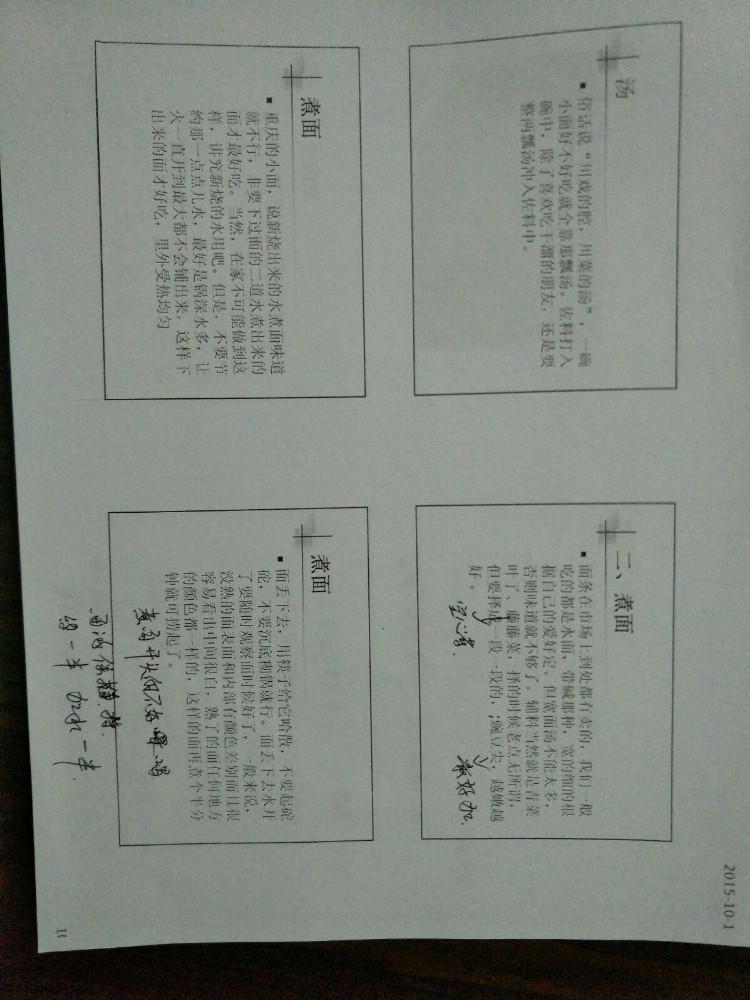 2015-10-1
汤
▪ 俗话说“川戏的腔，川菜的汤”，一碗
小面好不好吃就全靠那瓢汤。佐料打入
碗中，除了喜欢吃干溜的朋友，还是要
整两瓢汤冲入佐料中。
二、煮面
▪ 面条在市场上到处都有卖的，我们一般
吃的都是水面，带碱那种，宽的细的根
据自己的爱好定。但宽面汤不能太多，
否则味道就不够了。辅料当然就是青菜
叶了，藤藤菜，择的时候老点无所谓，
但要择成一段一段的，;豌豆尖，越嫩越
好。
空心菜.
最好加.
煮面
▪ 重庆的小面，说新烧出来的水煮面味道
就不行，非要下过面的二道水煮出来的
面才最好吃。当然，在家不可能做到这
样，讲究新烧的水用吧。但是，不要节
约那一点点儿水，最好是锅深水多，让
火一直开到最大都不会铺出来，这样下
出来的面才好吃，里外受热均匀
煮面
▪ 面丢下去，用筷子给它哈散，不要起砣
砣，不要沉底糊锅就行。面丢下去水开
了要随时观察面时候好了，一般来说，
没熟的面表面和内部有颜色差别而且很
容易看出中间很白，熟了的面任何地方
的颜色都一样的，这样的面再煮个半分
钟就可捞起了。
一半
一半
10